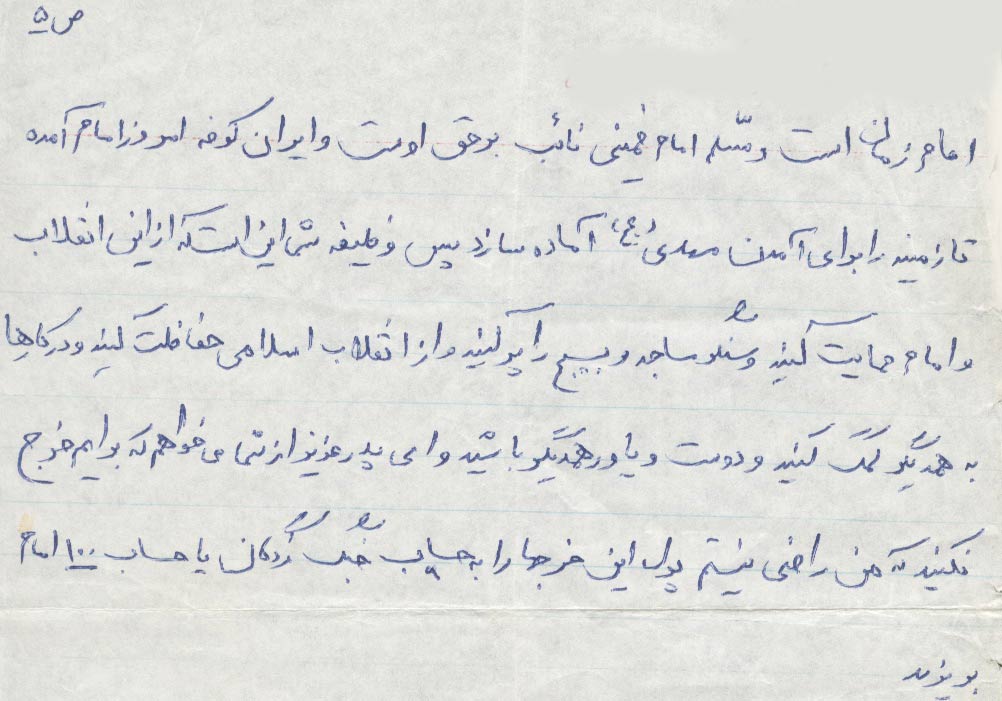 ص ۵
امام زمان است و مسلم امام خمینی نائب برحق اوست و ایران کوفه امروز امام آمده
تا زمینه را برای آمدن مهدی (عج) آماده سازد پس وظیفه شما این است که از این انقلاب
و امام حمایت کنید و سنگر مساجد و بسیج را پر کنید و از انقلاب اسلامی حفاظت کنید و در کارها
به همدیگر کمک کنید و دوست و یاور همدیگر باشید و ای پدر عزیز از شما می خواهم که برایم خرج
نکنید که من راضی نیستم پول این خرجها را به حساب جنگ زدگان یا حساب ۱۰۰ امام
بریزید